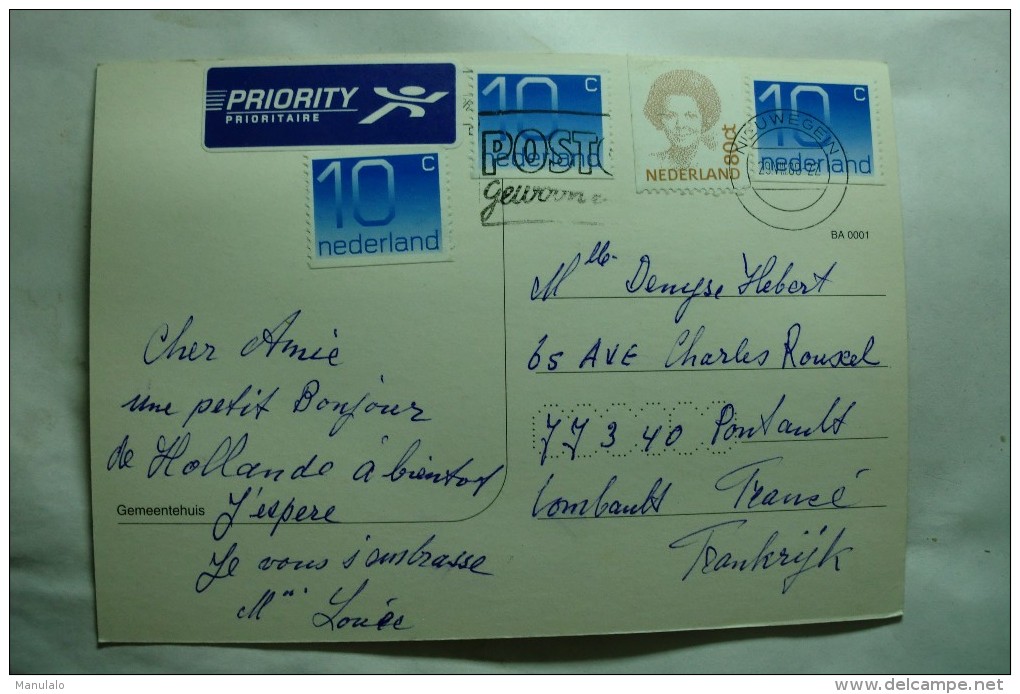 PRIORITY
PRIORITAIRE
10 C
nederland
10 C
nederland
POST
gewoon
80ct
NEDERLAND
10 C
nederland
NIEUWEGEIN
BA 0001
Mlle Denyse Hebert
65 AVE Charles Rouxel
77340 Pontault
Combault France
Frankrijk
Cher Amie
une petit Bonjour
de Hollande á bientot
J'espere
Je vous s'embrasse
Gemeentehuis
Manulalo
www.delcampe.net